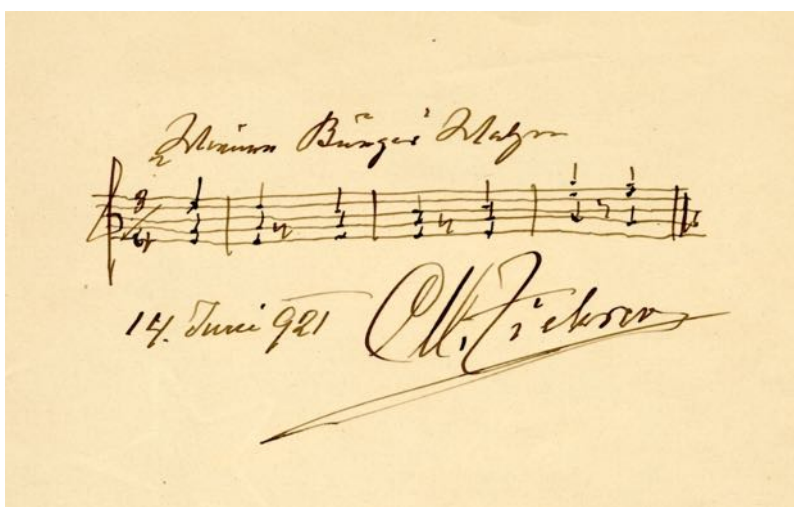 „Wiener Bürger" Walzer
3/4
14. Juni 921 C. M. Ziehrer